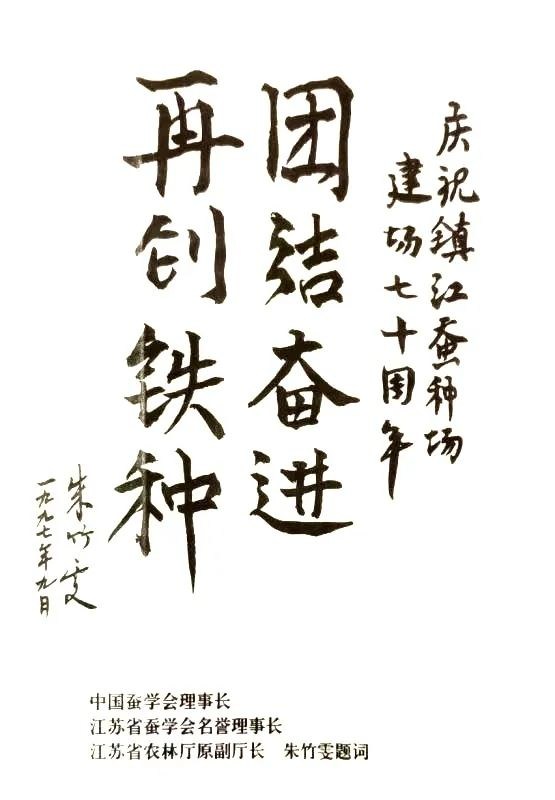 庆祝镇江蚕种场
建场七十周年
团结奋进
再创铁种
朱竹雯
一九九七年九月
中国蚕学会理事长
江苏省蚕学会名誉理事长
江苏省农林厅原副厅长　朱竹雯题词